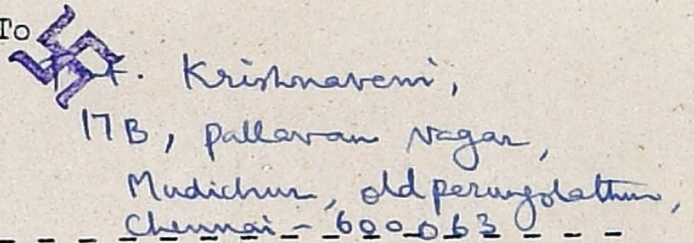 To
K. Krishnaveni,
17B, pallavan Nagar,
Mudichur, old perungolathur,
Chennai - 600 063